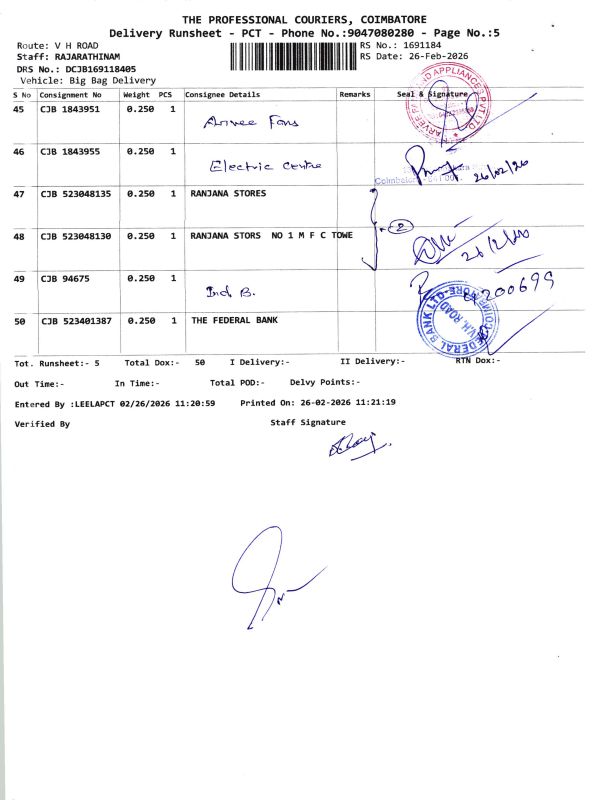 THE PROFESSIONAL COURIERS, COIMBATORE
Delivery Runsheet - PCT - Phone No.:9047080280 - Page No.:5
Route: V H ROAD
RS No.: 1691184
Staff: RAJARATHINAM
RS Date: 26-Feb-2026
DRS No.: DCJB169118405
Vehicle: Big Bag Delivery
S No Consignment No Weight PCS Consignee Details Remarks Seal & Signature
45 CJB 1843951 0.250 1 Arvee Fans
46 CJB 1843955 0.250 1 Electric Centre 26/02/26
Coimbatore
47 CJB 523048135 0.250 1 RANJANA STORES
2
48 CJB 523048130 0.250 1 RANJANA STORS NO 1 M F C TOWE
49 CJB 94675 0.250 1 Ind B. 200699
50 CJB 523401387 0.250 1 THE FEDERAL BANK
FEDERAL BANK LTD. COIMBATORE
V.H. ROAD
Tot. Runsheet:- 5 Total Dox:- 50 I Delivery:- II Delivery:- RTN Dox:-
Out Time:- In Time:- Total POD:- Delvy Points:-
Entered By :LEELAPCT 02/26/2026 11:20:59 Printed On: 26-02-2026 11:21:19
Verified By Staff Signature